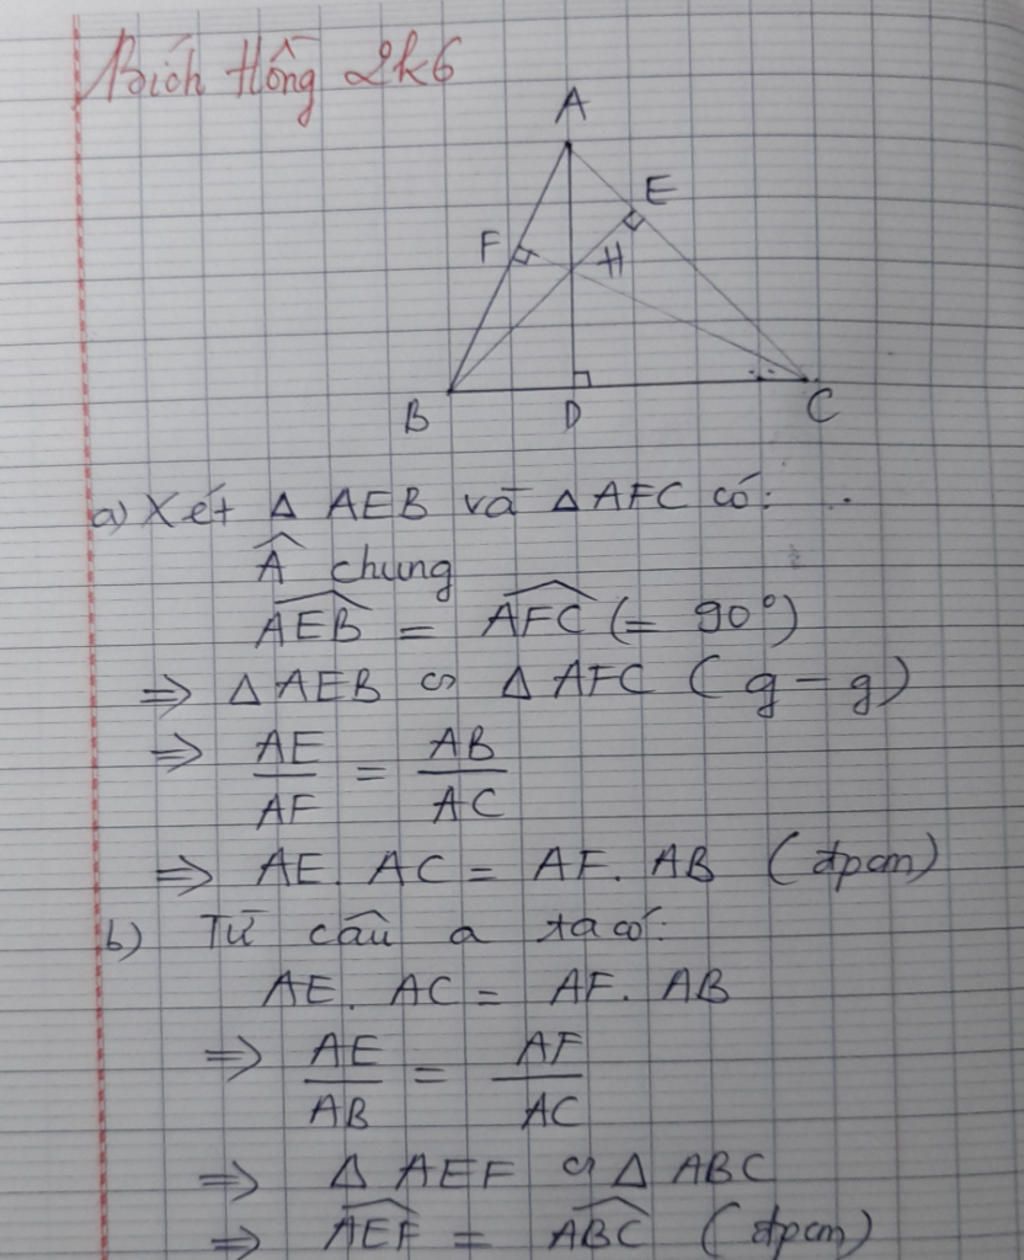 Bích Hồng 2k6
A
E
F
H
B
D
C
a) Xét Δ AEB và Δ AFC có:
Â chung
$\widehat{AEB}$ = $\widehat{AFC}$ (= 90°)
⇒ Δ AEB ∽ Δ AFC (g - g)
⇒ $\frac{AE}{AF}$ = $\frac{AB}{AC}$
⇒ AE. AC = AF. AB (đpcm)
b) Từ câu a ta có:
AE. AC = AF. AB
⇒ $\frac{AE}{AB}$ = $\frac{AF}{AC}$
⇒ Δ AEF ∽ Δ ABC
⇒ $\widehat{AEF}$ = $\widehat{ABC}$ (đpcm)